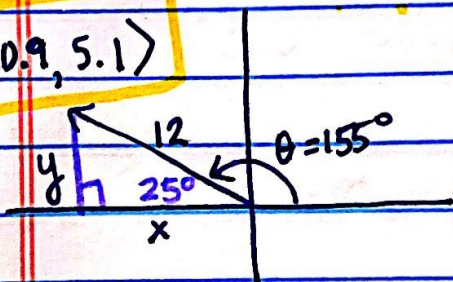 0.9, 5.1⟩
12
θ = 155°
y
25°
x